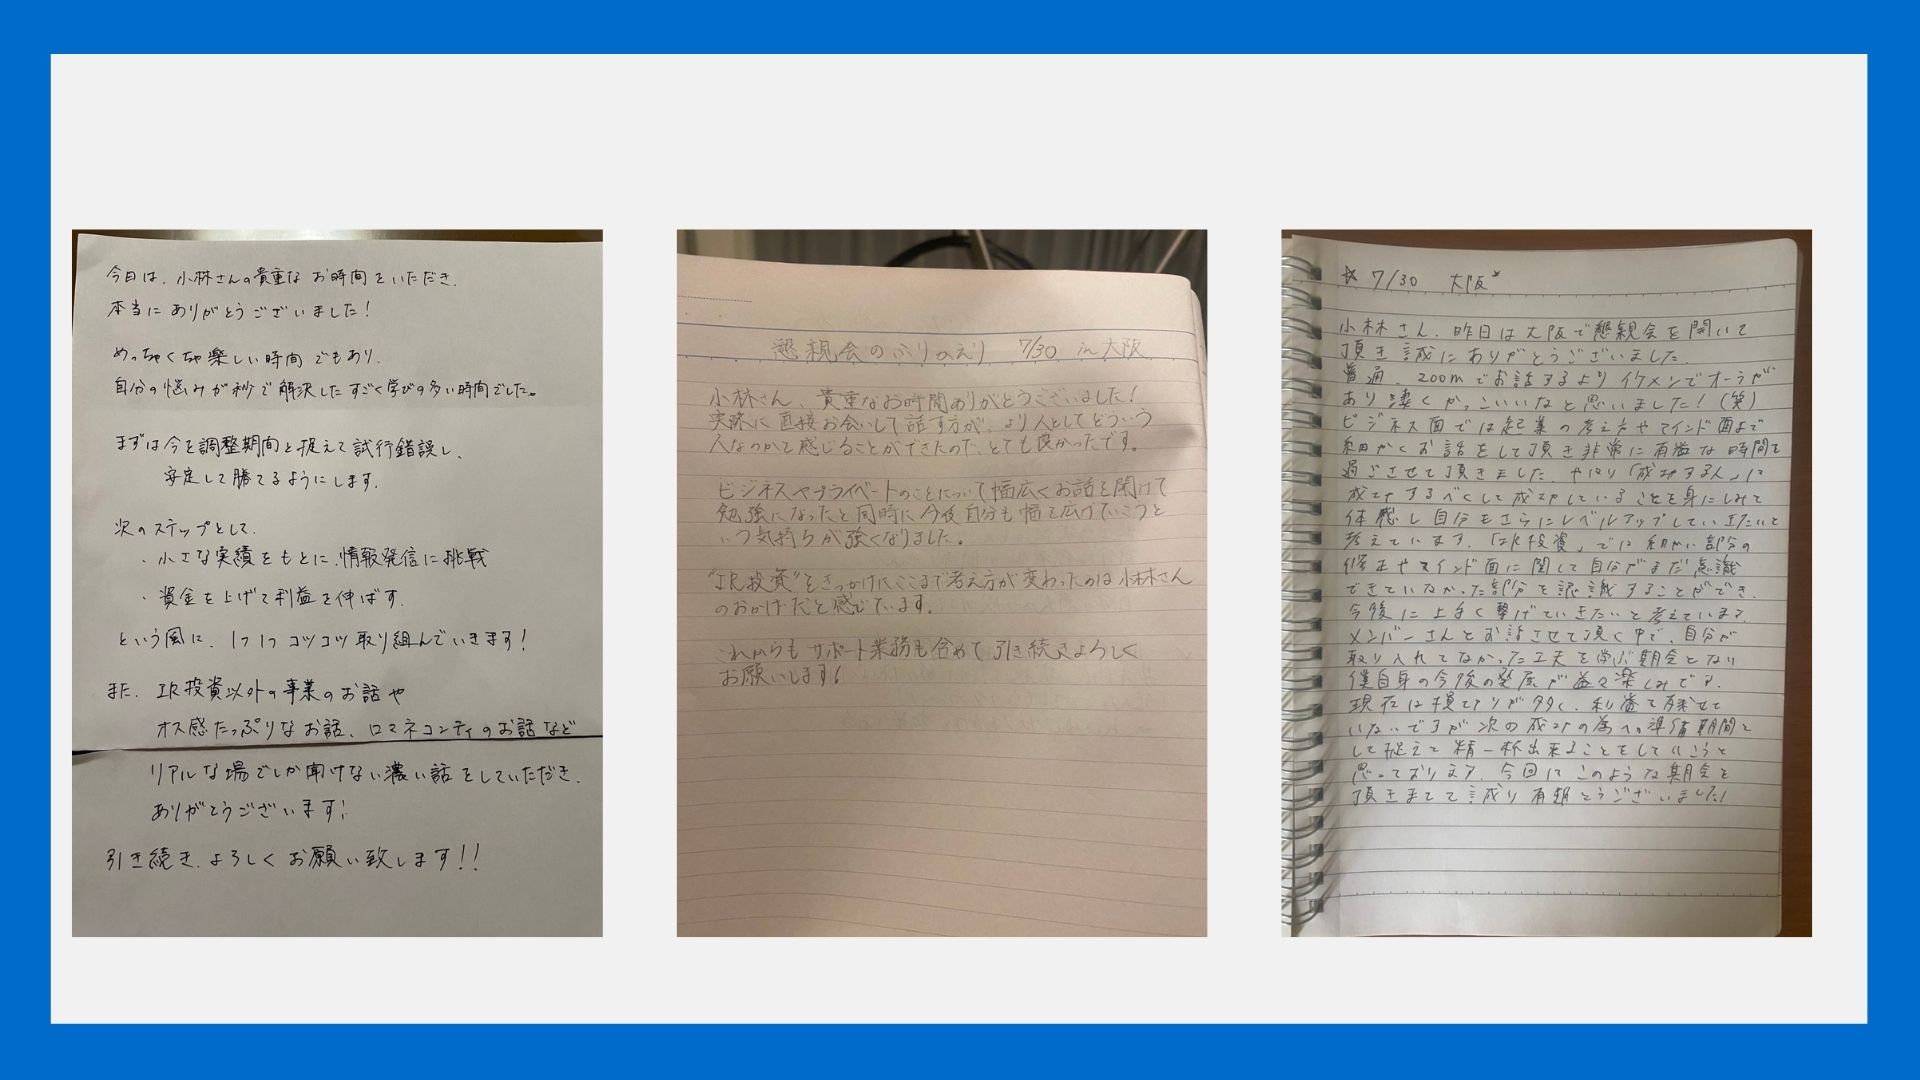 今日は、小林さんの貴重なお時間をいただき、
本当にありがとうございました!
めっちゃくちゃ楽しい時間でもあり、
自分の悩みが秒で解決したすごく学びの多い時間でした。
まずは今を調整期間と捉えて試行錯誤し、
安定して勝てるようにします。
次のステップとして、
・小さな実績をもとに、情報発信に挑戦
・資金を上げて利益を伸ばす。
という風に、1つ1つコツコツ取り組んでいきます!
また、IR投資以外の事業のお話や
オス感たっぷりなお話、ロマネコンティのお話など
リアルな場でしか聞けない濃い話をしていただき、
ありがとうございます!
引き続き、よろしくお願い致します!!
懇親会のふりかえり 7/30 in大阪
小林さん、貴重なお時間ありがとうございました!
実際に直接お会いして話す方が、より人としてどういう
人なのかを感じることができたので、とても良かったです。
ビジネスやプライベートのことについて幅広くお話を聞けて
勉強になったと同時に今後自分も幅を広げていこうと
いう気持ちが強くなりました。
"IR投資"をきっかけにここまで考え方が変わったのは小林さん
のおかげだと感じています。
これからもサポート業務も含めて引き続きよろしく
お願いします!
☆ 7/30 大阪*
小林さん、昨日は大阪で懇親会を開いて
頂き誠にありがとうございました。
普通、zoomでお話するよりイケメンでオーラが
あり凄くかっこいいなと思いました!(笑)
ビジネス面では起業の考え方やマインド面まで
細かくお話をして頂き非常に有益な時間を
過ごさせて頂きました。やはり「成功する人」は
成功するべくして成功していることを身にしみて
体感し自分もさらにレベルアップしていきたいと
考えています。「IR投資」では細かい部分の
修正やマインド面に関して自分がまだ意識
できていなかった部分を認識することができ、
今後に上手く繋げていきたいと考えています。
メンバーさんとお話させて頂く中で、自分が
取り入れてなかった工夫を学ぶ機会となり
僕自身の今後の発展が益々楽しみです。
現在は損切りが多く、利益を稼せて
いないですが次の成功の為への準備期間と
して捉えて精一杯出来ることをしていこうと
思っております。今回はこのような機会を
頂きまして誠に有難とうございました!